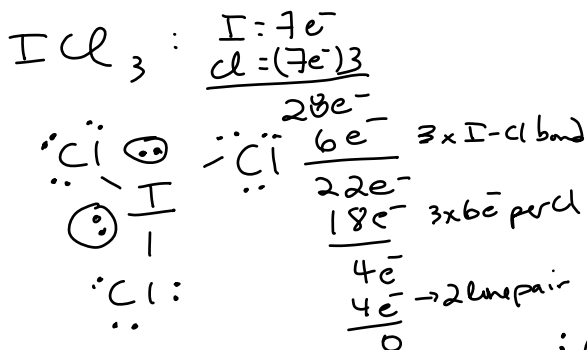 ICl₃ : I = 7e⁻
Cl = (7e⁻)3
28e⁻
6e⁻ 3 x I-Cl bond
22e⁻
18e⁻ 3x6e⁻ per Cl
4e⁻
4e⁻ → 2 lone pair
0
Cl Cl
I
Cl